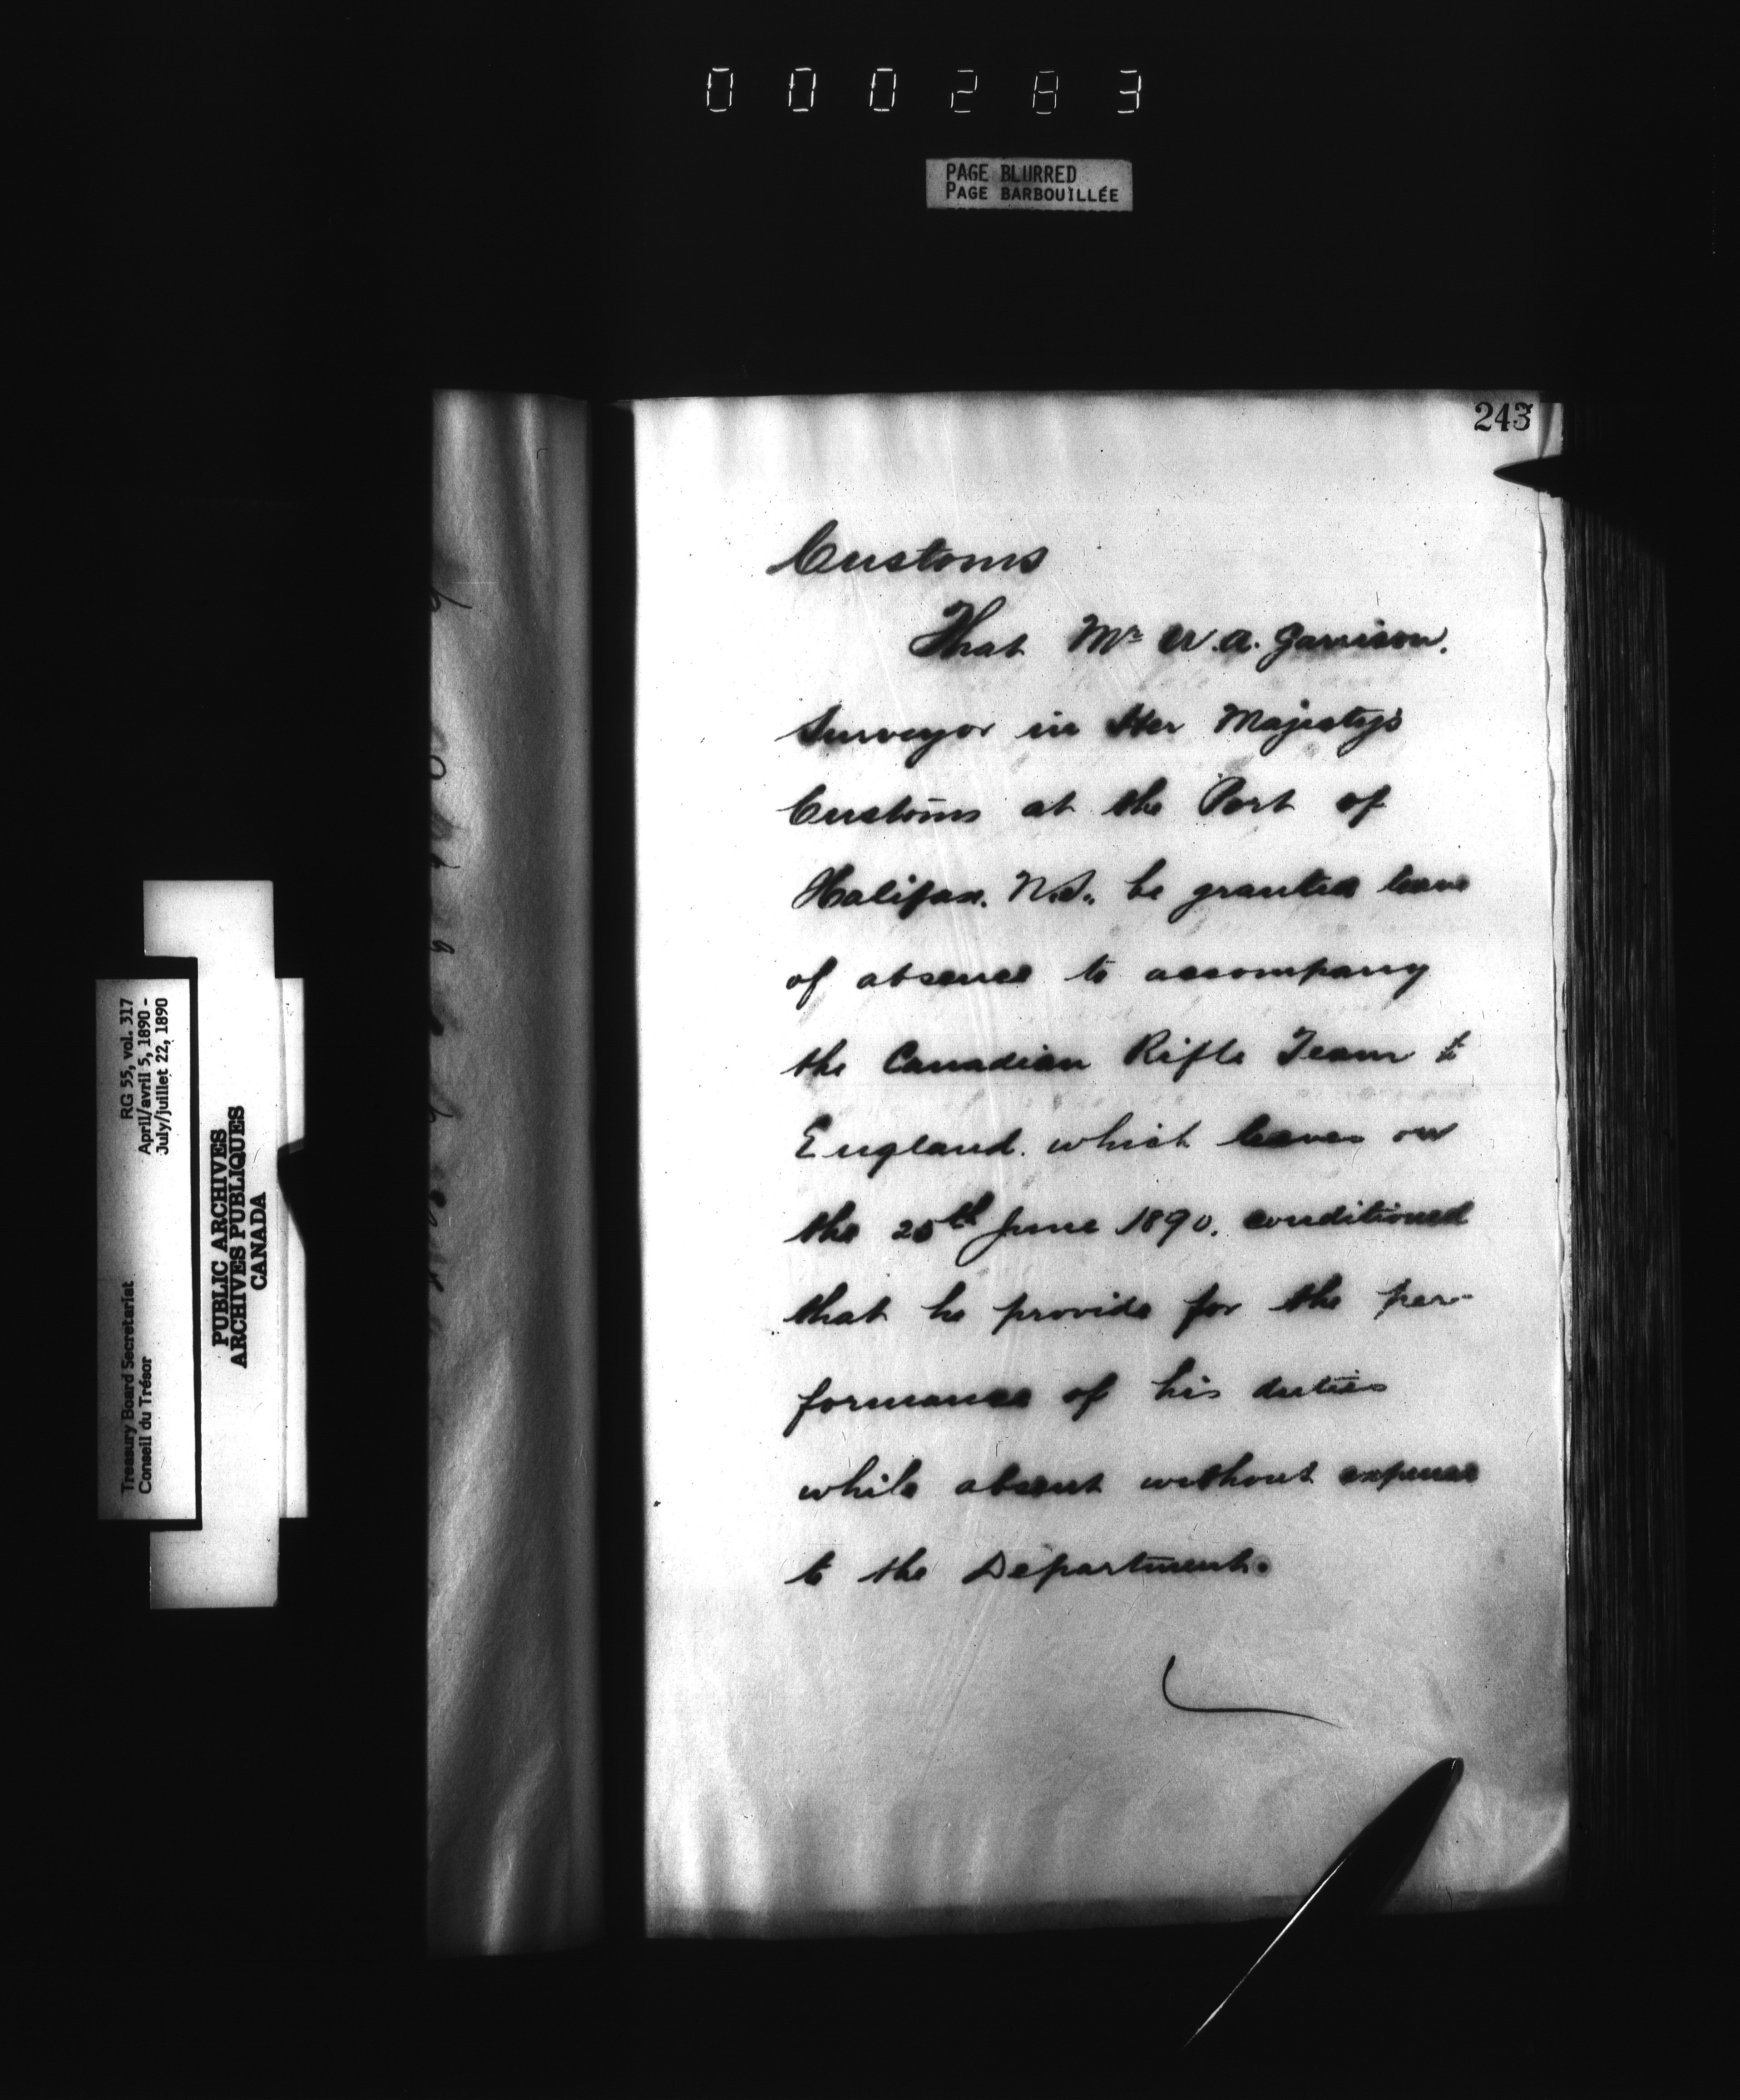 000283
PAGE BLURRED
PAGE BARBOUILLÉE
243
Customs
That Mr W. A. Garrison.
Surveyor in Her Majesty's
Customs at the Port of
Halifax. N.S., be granted leave
of absence to accompany
the Canadian Rifle Team to
England. which leaves on
the 25th June 1890. conditioned
that he provide for the per-
formance of his duties
while absent without expense
to the Department.
Treasury Board Secretariat RG 55, vol. 317
Conseil du Trésor April/avril 5, 1890 -
July/juillet 22, 1890
PUBLIC ARCHIVES
ARCHIVES PUBLIQUES
CANADA